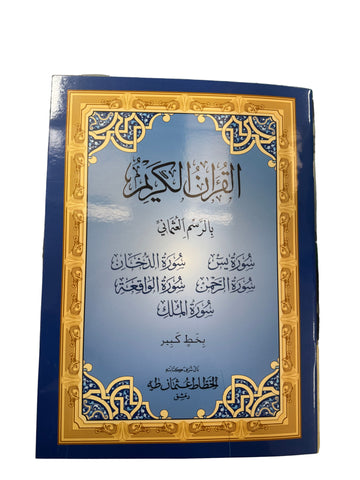 القرآن الكريم
بالرسم العثماني
سورة يس سورة الدخان
سورة الرحمن سورة الواقعة
سورة الملك
بخط كبير
الخطاط عثمان طه
دمشق